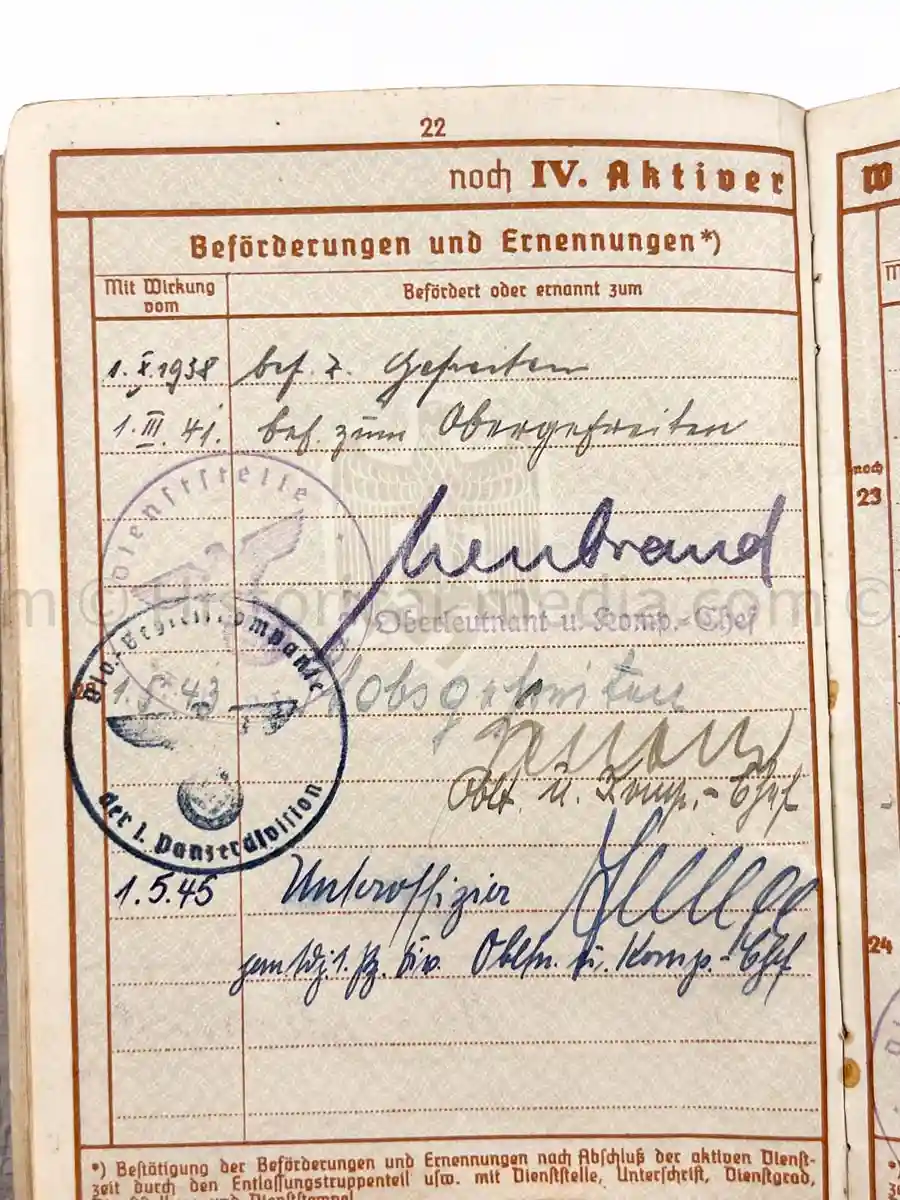 22
noch IV. Aktiver
W
Beförderungen und Ernennungen*)
Mit Wirkung
vom
Befördert oder ernannt zum
1. X. 1938 bef. z. Gefreiten
1. III. 41. bef. zum Obergefreiten
noch
23
Dienststelle
Oberleutnant u. Komp.-Chef
© Historical-media.com ©
Begleitkompanie
1. 5. 43
der 1. Panzerdivision
Oblt. u. Komp.-Chef
1.5.45 Unteroffizier
1. Pz. Div. Obltn. u. Komp.-Chef
24
*) Bestätigung der Beförderungen und Ernennungen nach Abschluß der aktiven Dienst-
zeit durch den Entlassungstruppenteil usw. mit Dienststelle, Unterschrift, Dienstgrad,
und Dienststempel